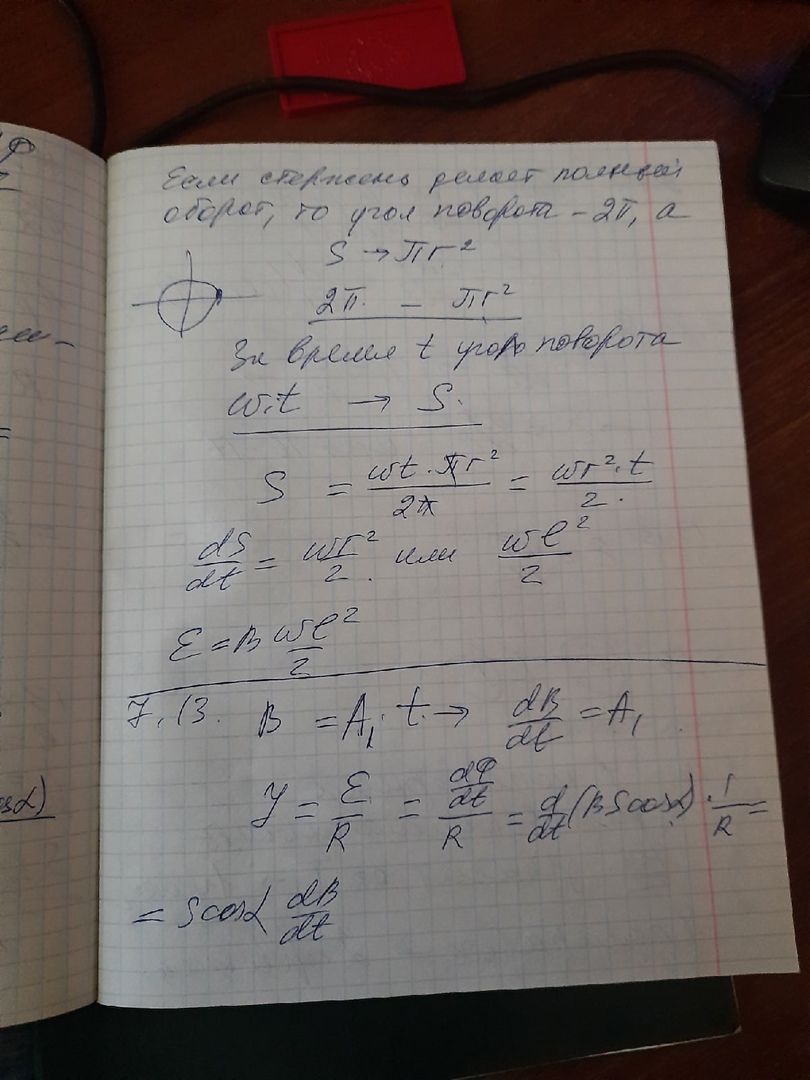 Если стержень делает полный
оборот, то угол поворота - 2π, а
S → πr²
2π. - πr²
За время t угол поворота
ω·t → S.
S = ωt·πr²/2π = ωr²·t/2.
dS/dt = ωr²/2. или ωl²/2
Ɛ = B ωl²/2
7.13. B = A₁·t. → dB/dt = A₁
J = Ɛ/R = (dФ/dt)/R = d/dt(BScosα)·1/R =
= Scosα dB/dt
osα)